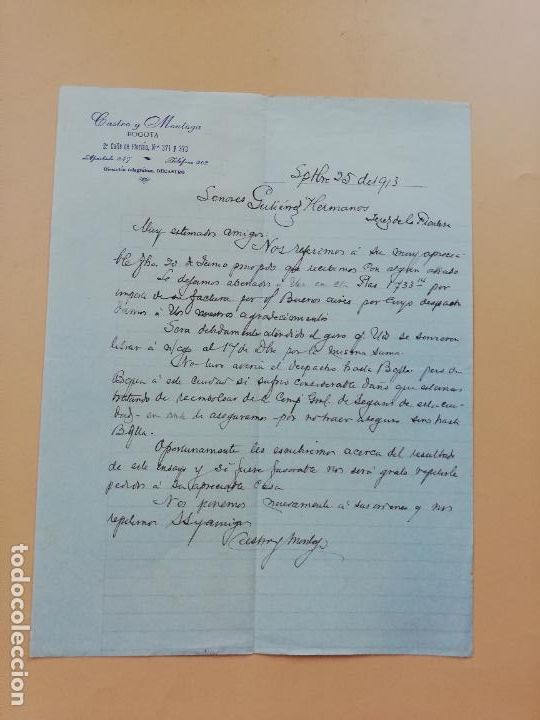 Castro y Montoya
BOGOTA
2ª Calle de Florián, Nos 371 y 373
Apartado 247 — Teléfono 202
Dirección telegráfica: DECASTRO
Sptbre 25 de 1913
Señores Gutiérrez Hermanos
Jerez de la Frontera
Muy estimados amigos:
Nos referimos á su muy aprecia-
ble fha. 30 de Junio ppdo que recibimos con algún atraso
Le dejamos abonados á Uds en cta Ptas 1733 por
importe de su factura por vr Buenos Aires por cuyo despacho
damos á Uds nuestros agradecimientos
Será debidamente atendido el giro q' Uds se servirán
librar á n/cgo al 17 de Dbre por la misma suma.
No tuvo avería el despacho hasta Bqlla pero de
á esta ciudad si sufrió considerable daño que estamos
tratando de reembolsar de la Comp. Gral. de Seguros de esta ciu-
dad - en una de aseguramos - por no traer seguro sino hasta
Bqlla.
Oportunamente les escribiremos acerca del resultado
de este ensayo y si fuere favorable nos será grato repetirle
pedidos á su apreciable Casa
Nos ponemos nuevamente á sus órdenes y nos
repetimos SS y amigos
Castro y Montoya
todocoleccion
todocoleccion